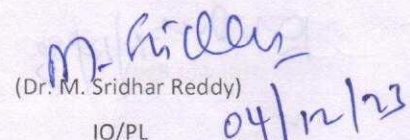 M. Sridhar
(Dr. M. Sridhar Reddy)
IO/PL
04/12/23